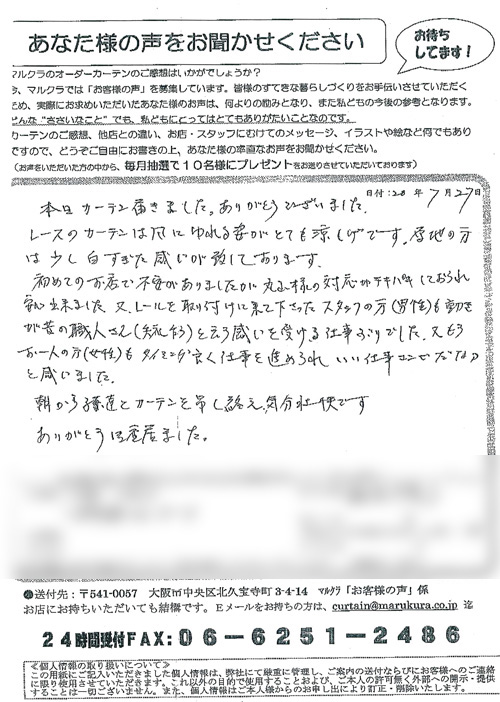 あなた様の声をお聞かせください
お待ち
してます!
マルクラのオーダーカーテンのご感想はいかがでしょうか?
今、マルクラでは「お客様の声」を募集しています。皆様のすてきな暮らしづくりをお手伝いさせていただく
ため、実際にお求めいただいたあなた様のお声は、何よりの励みとなり、また私どもの今後の参考となります。
どんな“ささいなこと”でも、私どもにとってはとてもありがたいことなのです。
カーテンのご感想、他店との違い、お店・スタッフにむけてのメッセージ、イラストや絵など何でもあり
ですので、どうぞご自由にお書きの上、あなた様の率直なお声をお聞かせください。
(お声をいただいた方の中から、毎月抽選で10名様にプレゼントをお送りさせていただいております)
日付:20 年 7月27日
本日カーテン届きました。ありがとうございました。
レースのカーテンは風にゆれる姿がとても涼しげです。厚地の方
は少し白すぎた感じが致しております。
初めてのお店で不安がありましたが 様の対応がテキパキしておられ
安心出来ました 又、レールを取り付けに来て下さったスタッフの方(男性)も動き
が昔の職人さん(失礼かな)と云う感じを受ける仕事ぶりでした。又もう
お一人の方(女性)もタイミング良く仕事を進められ いい仕事コンビだな
と感じました。
朝から子供達とカーテンを吊し終え、気分壮快です
ありがとうございました。
●送付先:〒541-0057 大阪市中央区北久宝寺町3-4-14 マルクラ「お客様の声」係
お店にお持ちいただいても結構です。Eメールをお持ちの方は、curtain@marukura.co.jp 迄
24時間受付FAX:06-6251-2486
≪個人情報の取り扱いについて≫
この用紙にご記入いただきました個人情報は、弊社にて厳重に管理し、ご案内の送付ならびにお客様へのご連絡
に限り使用させていただきます。これ以外の目的で使用することおよび、ご本人の許可無く外部への開示・提供
することは一切ございません。また、個人情報はご本人様からのお申し出により訂正・削除いたします。